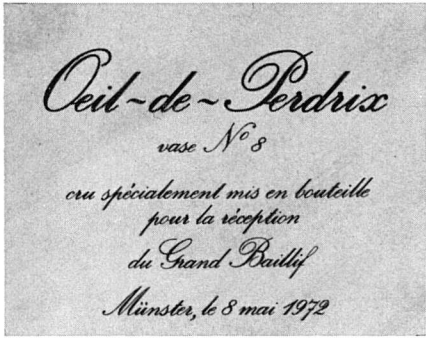 Oeil~de~Perdrix
vase Nº 8
cru spécialement mis en bouteille
pour la réception
du Grand Baillif
Münster, le 8 mai 1972